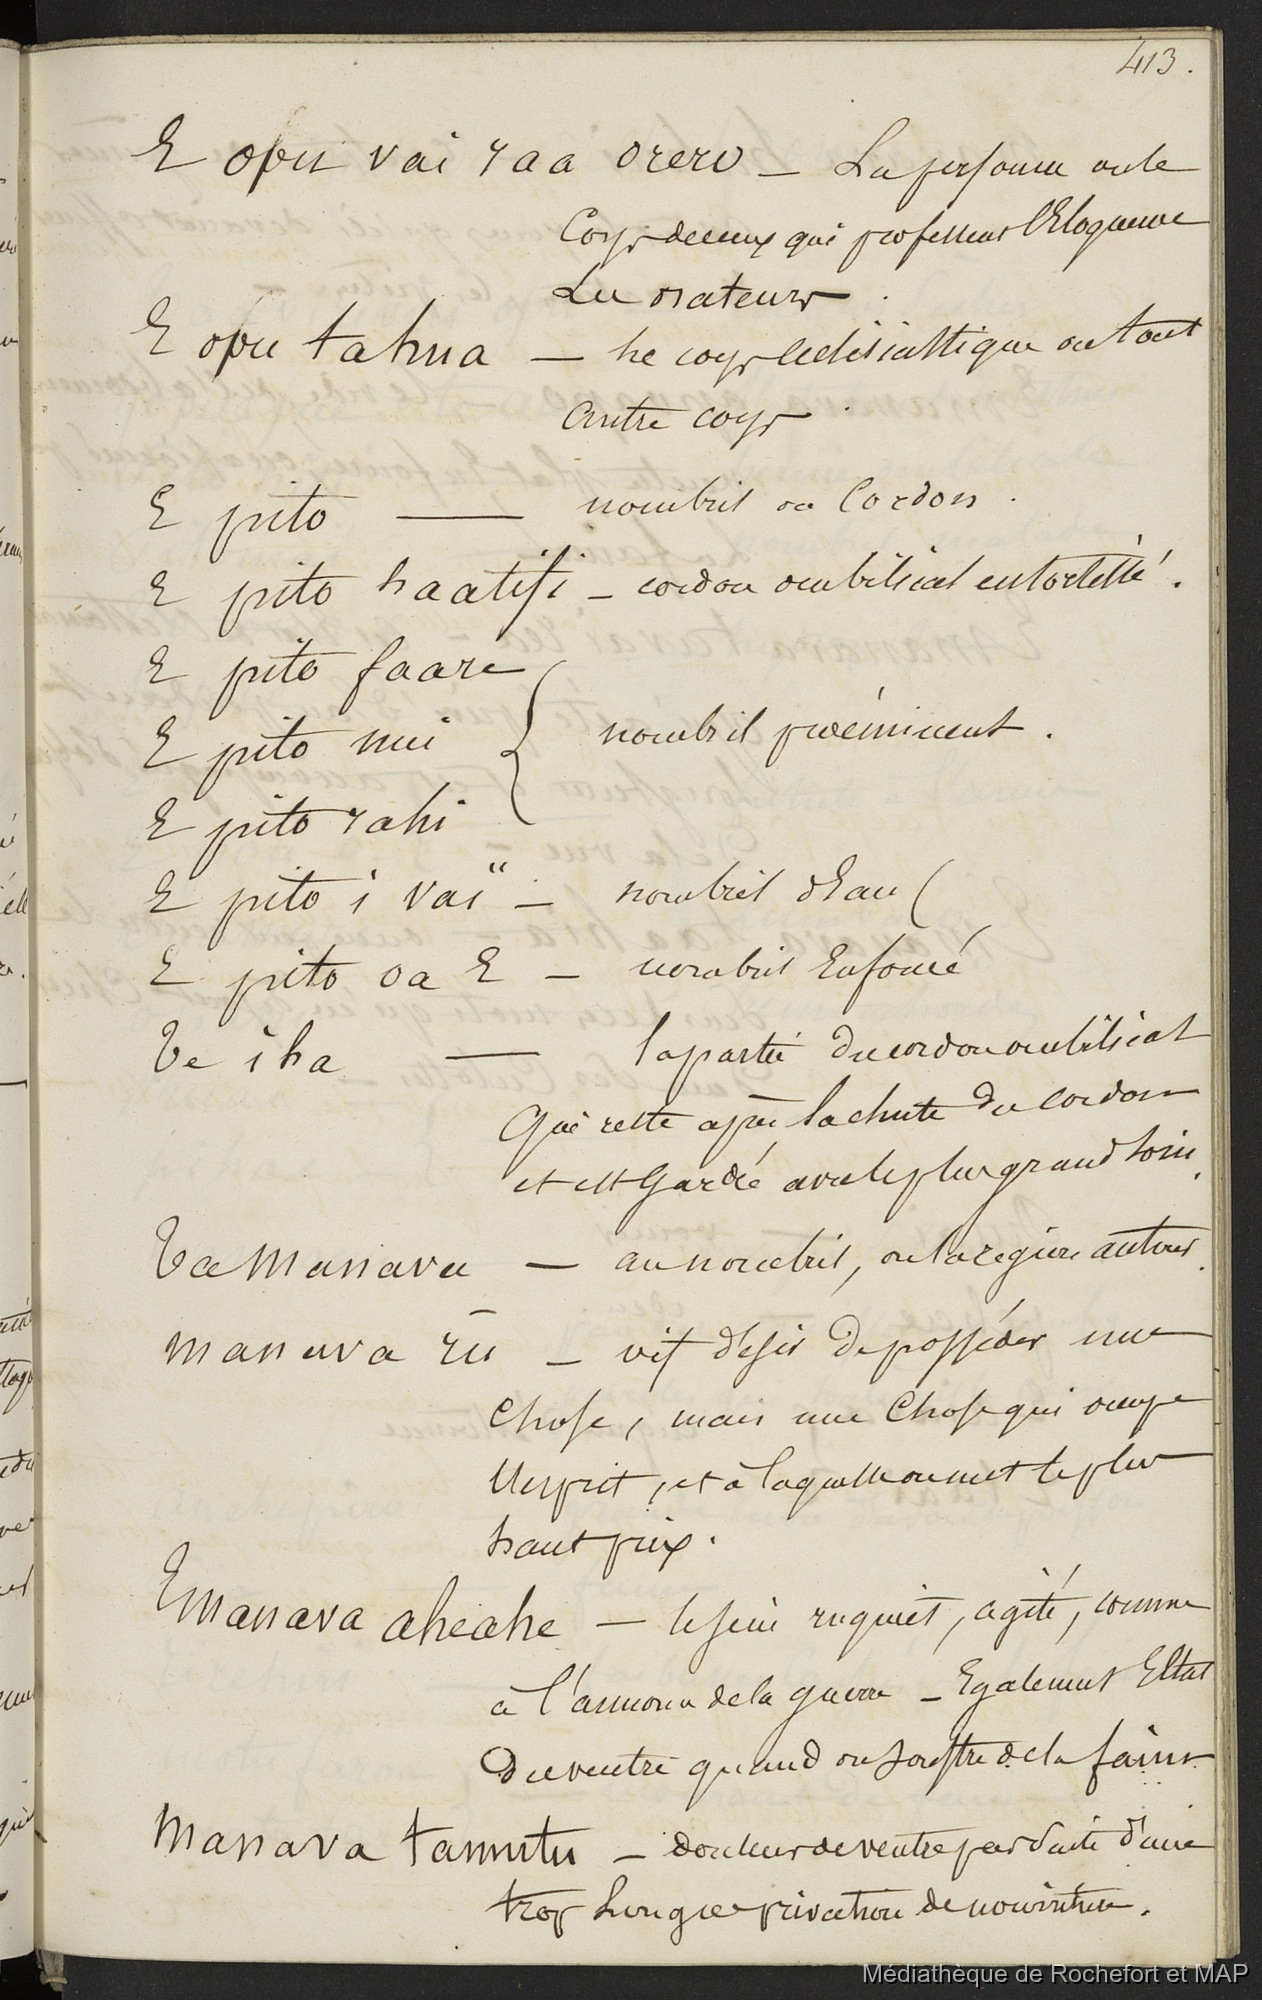 413.
E opu vai raa orero — La personne ou le
Corps de ceux qui professent l'Eloquence
Les orateurs.
E opu tahua — Le corps Ecclésiastique ou tout
autre corps.
E pito — nombril ou Cordon.
E pito haatifi — cordon ombilical entortillé.
E pito faare
E pito nui { nombril proéminent.
E pito rahi
E pito i vai" — nombril d'Eau (
E pito oa E — nombril Enfoncé
Te iha — la partie du cordon ombilical
Qui reste après la chute du cordon
et est Gardée avec le plus grand soin.
Te Manava — au nombril, ou la region autour.
Manava rū — vif désir de posséder une
Chose, mais une Chose qui occupe
l'Esprit, et à laquelle on met le plus
haut prix.
E Manava aheahe — le sein inquiet, agité, comme
à l'annonce de la guerre — Egalement Etat
Du ventre quand on souffre de la faim
Manava tamutu — douleur de ventre par suite d'une
trop longue privation de nourriture.
Médiathèque de Rochefort et MAP